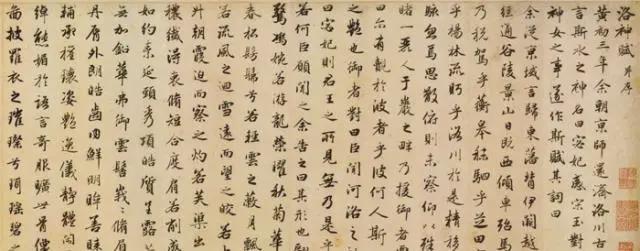 洛神賦 并序
黃初三年余朝京師還濟洛川古
言斯水之神名曰宓妃感宋玉對
神女之事遂作斯賦其詞曰
余從京城言歸東藩背伊闕越
徑通谷陵景山日既西傾車殆馬
乃稅駕乎蘅皋秣駟乎芝田
乎楊林流眄乎洛川於是精移
駭忽焉思散俯則未察仰以殊
睹一麗人于巖之畔乃援御者
曰尒有覿於彼者乎彼何人斯
之豔也御者對曰臣聞河洛之
曰宓妃則君王之所見無乃是乎
若何臣願聞之余告之曰其形也翩
驚鴻婉若游龍榮曜秋菊華
春松髣髴兮若輕雲之蔽月飄
若流風之迴雪遠而望之皎若
升朝霞迫而察之灼若芙蕖出
穠纖得衷脩短合度肩若削
如約素延頸秀項皓質呈露
無加鉛華弗御雲髻峩峩脩眉
丹脣外朗皓齒內鮮明眸善睞
輔承權瓌姿豔逸儀靜體閑
綽態媚於語言奇服曠世骨像
圖披羅衣之璀璨兮珥瑤碧之